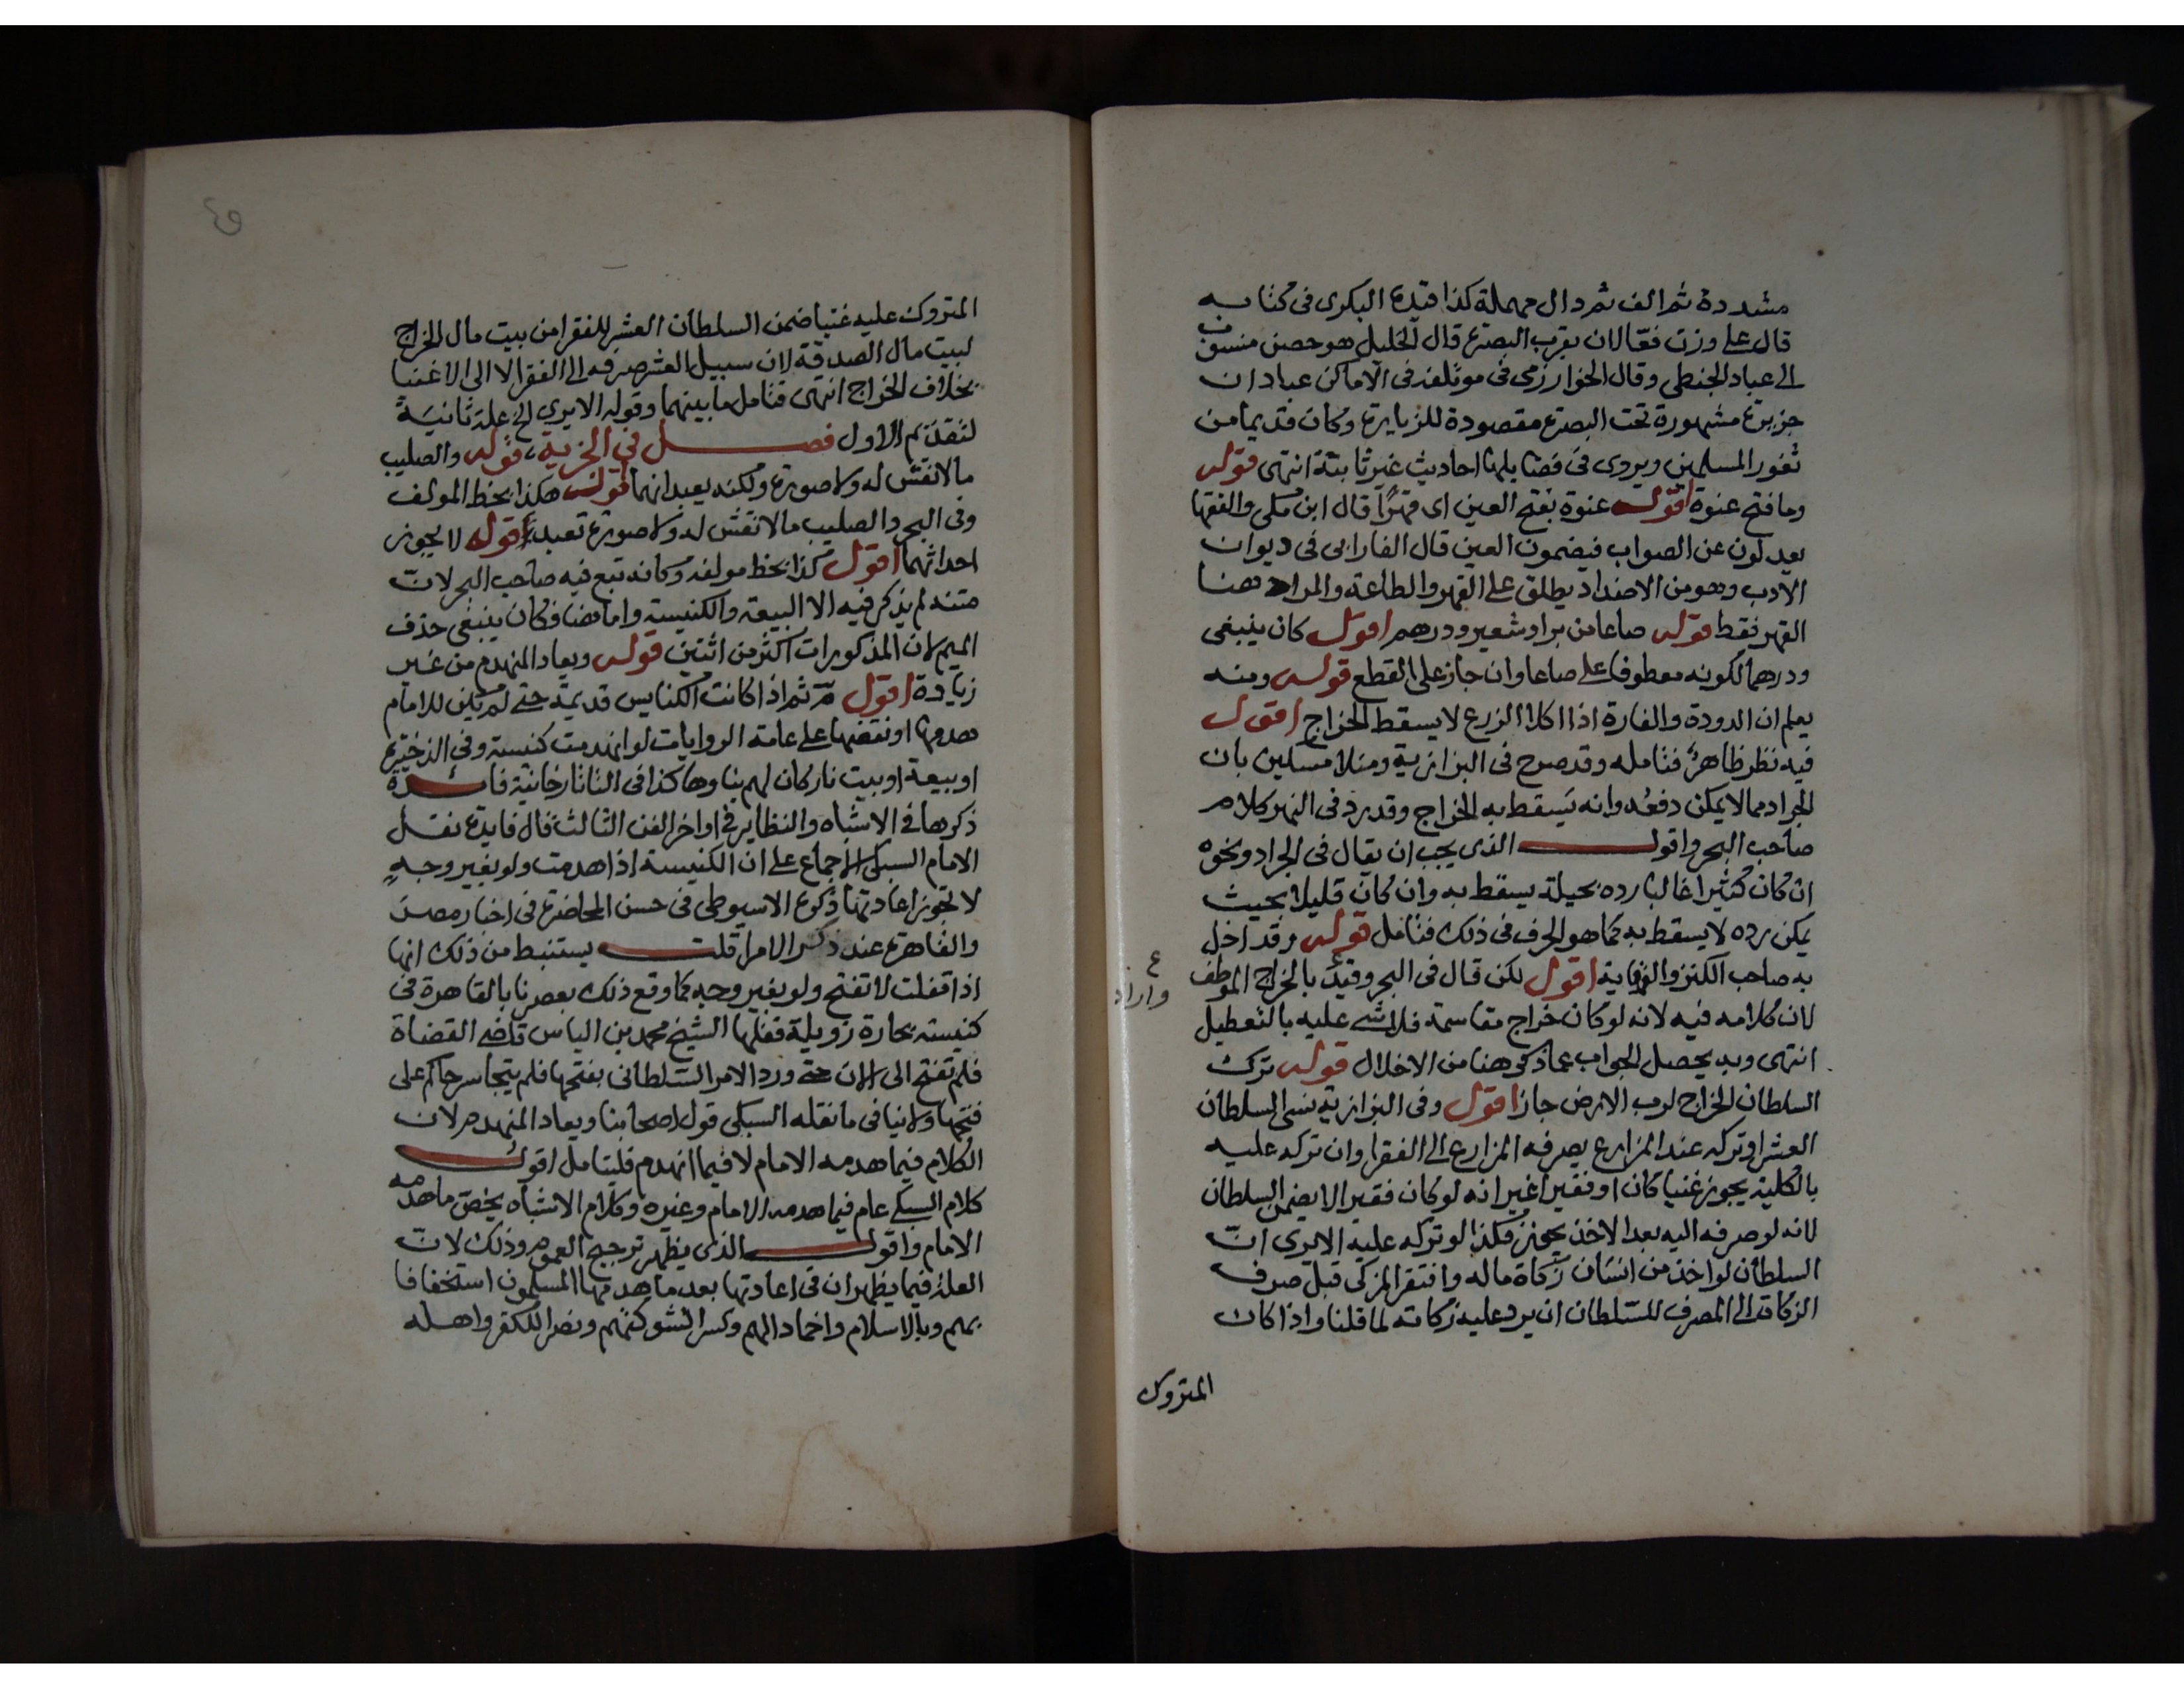 مشددة ثم الف ثم دال مهملة كذا قيده البكرى فى كتابه
قال على وزن فعّالان بقرب البصرة قال الخليل هو حصن منسوب
الى عباد الحنطى وقال الخوارزمى فى موتلفه فى الاماكن عبادان
جزيرة مشهورة تحت البصرة مقصودة للزيارة وكان قديما من
ثغور المسلمين ويروى فى فضايلها احاديث غير ثابتة انتهى قوله
وما فتح عنوة اقول عنوة بفتح العين اى قهرًا قال ابن مكى والفقها
يعدلون عن الصواب فيضمون العين قال الفارابى فى ديوان
الادب وهو من الاضداد يطلق على القهر والطاعة والمراد هنا
القهر فقط قوله صاعا من بر او شعير ودرهم اقول كان ينبغى
ودرهما لكونه معطوفا على صاعا وان جاز على القطع قوله ومنه
يعلم ان الدودة والفارة اذا اكلا الزرع لا يسقط الخراج اقول
فيه نظر ظاهر فتامله وقد صرح فى البزازية ومنلا مسكين بان
الجراد مما لا يمكن دفعُه وانه يَسقط به الخراج وقد رد فى النهر كلام
صاحب البحر واقول الذى يجب ان يقال فى الجراد ونحوه
ان كان كثيرا غالبا رده بحيلة يسقط به وان كان قليلا بحيث
يمكن رده لا يسقط به كما هو الحرف فى ذلك فتامل قوله وقد اخل
به صاحب الكنز والوقاية اقول لكن قال فى البحر وقيد بالخراج الموظف
لان كلامه فيه لانه لو كان خراج مقاسمة فلا شى عليه بالتعطيل
انتهى وبه يحصل الجواب عما ذكره هنا من الاخلال قوله ترك
السلطان الخراج لرب الارض جاز اقول وفى البزازية نسى السلطان
العشر او تركه عند المزارع يصرفه المزارع الى الفقرا وان تركه عليه
بالكلية يجوز غنيا كان او فقيرا غير انه لو كان فقيرا لا يضمن السلطان
لانه لو صرفه اليه بعد الاخذ يجوز فكذا لو تركه عليه الا يرى انّ
السلطان لو اخذ من انسان زكاة ماله وافتقر المزكى قبل صرف
الزكاة الى المصرف للسلطان ان يرد عليه زكاته لما قلنا واذا كان
المتروك
المتروك عليه غنيا ضمن السلطان العشر للفقرا من بيت مال الخراج
لبيت مال الصدقة لان سبيل العشر صرفه الى الفقرا لا الى الاغنيا
بخلاف الخراج انتهى فتامل ما بينهما وقوله الا يرى الخ علة ثانيَةً
لتقدّم الاول فصل فى الجزية، قوله والصليب
ما لا نقش له ولا صورة ولكنه يعبد انهما اقول هكذا بخط المولف
وفى البحر والصليب ما لا نقش له ولا صورة تعبد قوله لا يجوز
احداثهما اقول كذا بخط مولفه وكانه تبع فيه صاحب البحر لانّ
متنه لم يذكر فيه الا البيعة والكنيسة واما هنا فكان ينبغى حذف
الميم لان المذكورات اكثر من اثنتين قوله ويعاد المنهدم من غير
زيادة اقول مرّ ثم اذا كانت الكنايس قديمة حتى لم يكن للامام
هدمها او نقضها على عامة الروايات لو انهدمت كنيسة وفى الذخيرة
او بيعة او بيت نار كان لهم بناوها كذا فى التاتارخانية فائدة
ذكرها فى الاشباه والنظاير فى اواخر الفن الثالث قال فايدة نقل
الامام السبكى الاجماع على ان الكنيسة اذا هدمت ولو بغير وجهٍ
لا تجوز اعادتها ذكره الاسيوطى فى حسن المحاضرة فى اخبار مصر
والقاهرة عند ذكر الامرا قلت يستنبط من ذلك انها
اذا قفلت لا تفتح ولو بغير وجه كما وقع ذلك بعصرنا بالقاهرة فى
كنيسة بحارة زويلة قفلها الشيخ محمد بن الياس قاضى القضاة
فلم تفتح الى الان حتى ورد الامر السلطانى بفتحها فلم يتجاسر حاكم على
فتحها ولا ينافى ما نقله السبكى قول اصحابنا ويعاد المنهدم لان
الكلام فيما هدمه الامام لا فيما انهدم فليتامل اقول
كلام السبكى عام فيما هدمه الامام وغيره وكلام الاشباه يخصّ ما هدمه
الامام واقول الذى يظهر ترجيح العموم وذلك لانّ
العلة فيما يظهر ان فى اعادتها بعد ما هدمها المسلمون استخفافا
بهم وبالاسلام واخمادا لهم وكسرا لشوكتهم ونصرا للكفر واهله